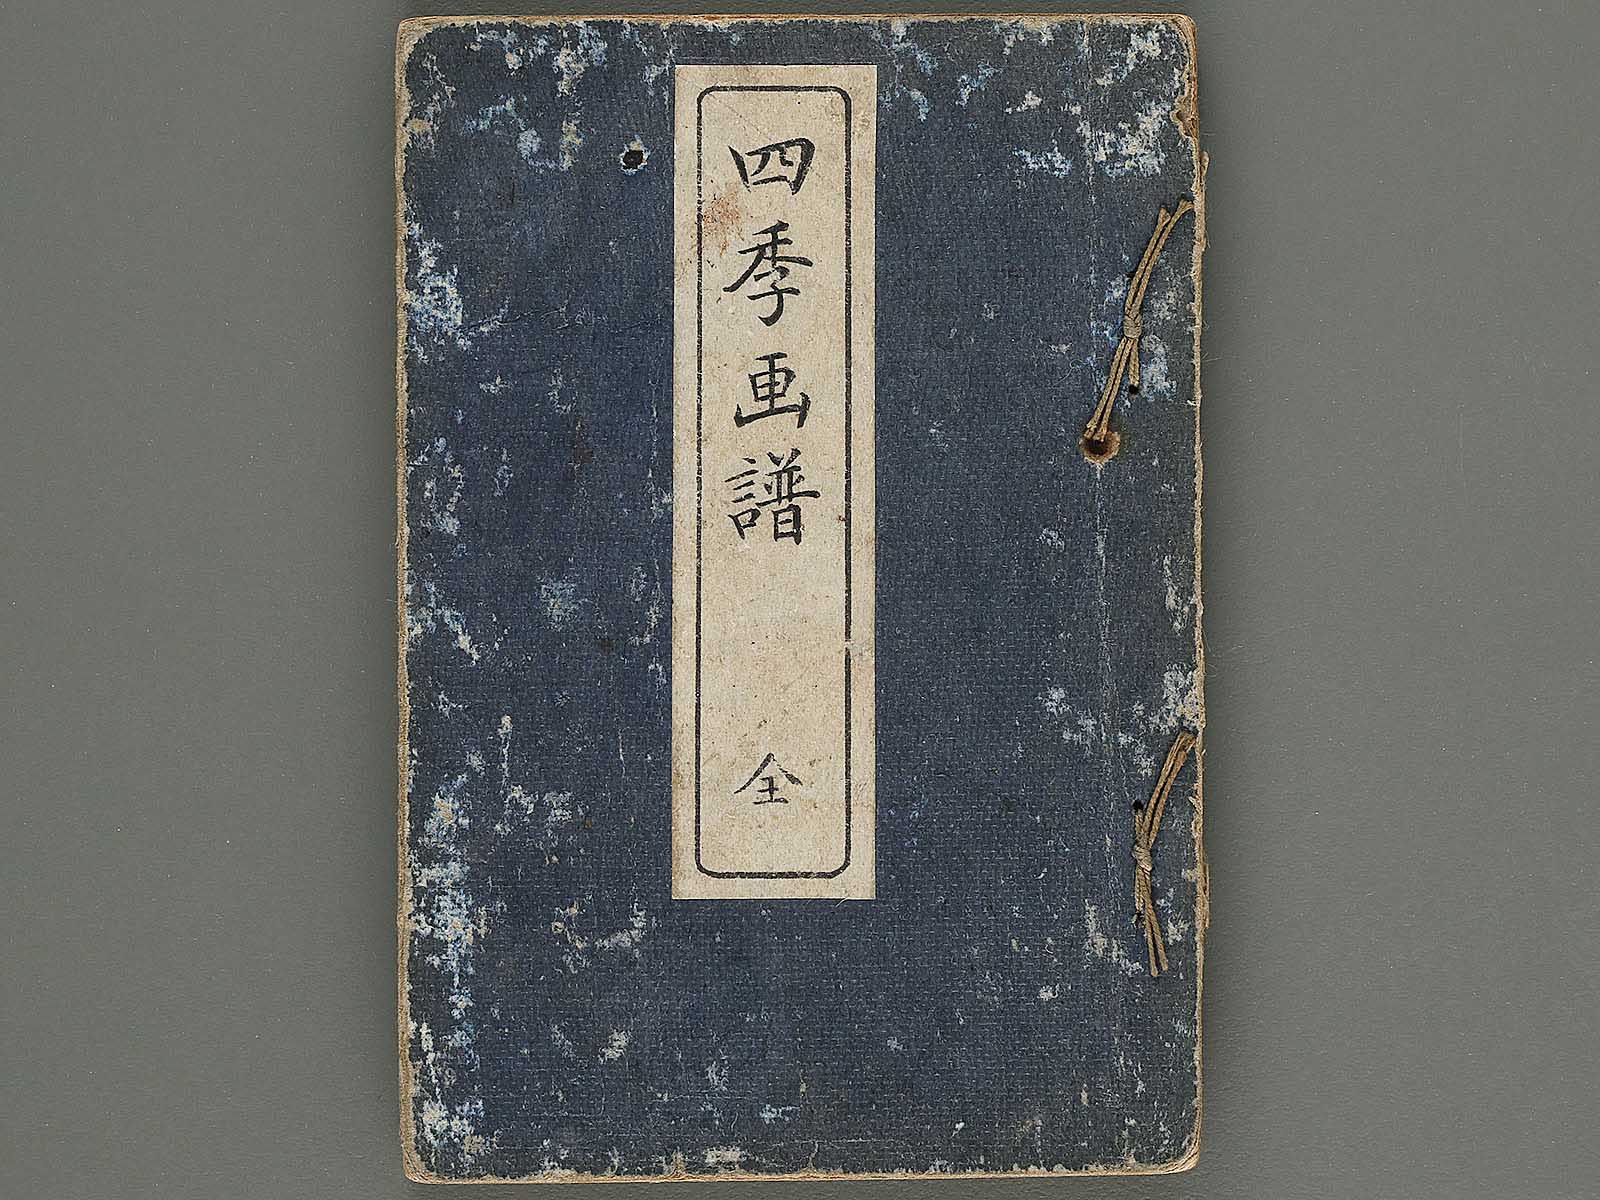 四季画譜 全